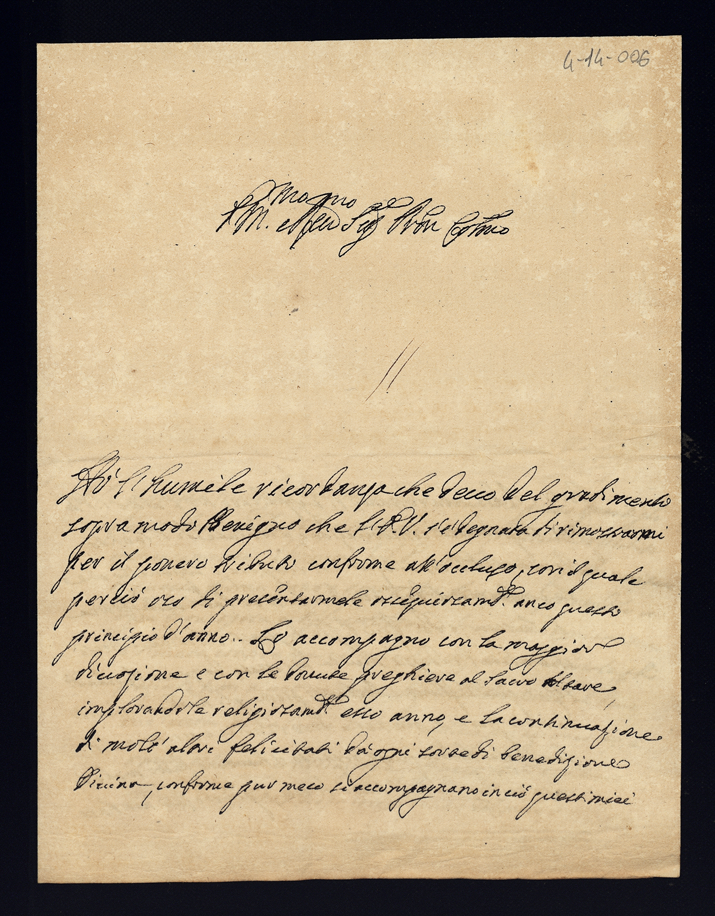 4-14-006
Hò l'humile ricordanza che devo del gradimento
sopra modo Benigno che l'A.V. s'è degnata di rimostrarmi
per il povero tributo conforme all'occluso, con il quale
perciò oso di presentarmele ossequiosam.te anco questo
principio d'anno. Lo accompagno con la maggior
divozione e con le dovute preghiere al Sacro Altare,
implorandole religiosam.te esso anno, e la continuazione
di molt'altri felicitati da ogni sorte di benedizione
Divina, conforme pur meco si accompagnano in ciò questi miei